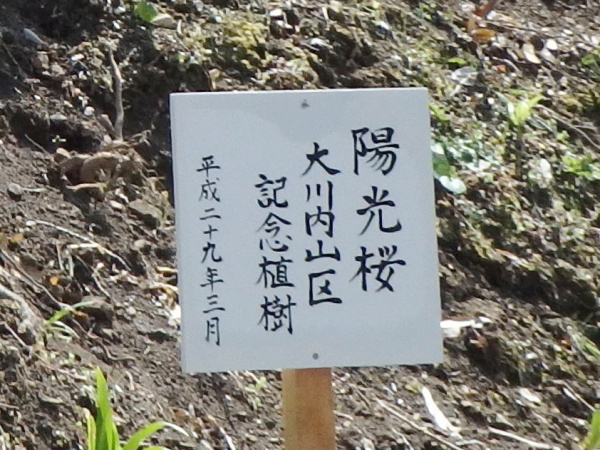 陽光桜
大川内山区
記念植樹
平成二十九年三月